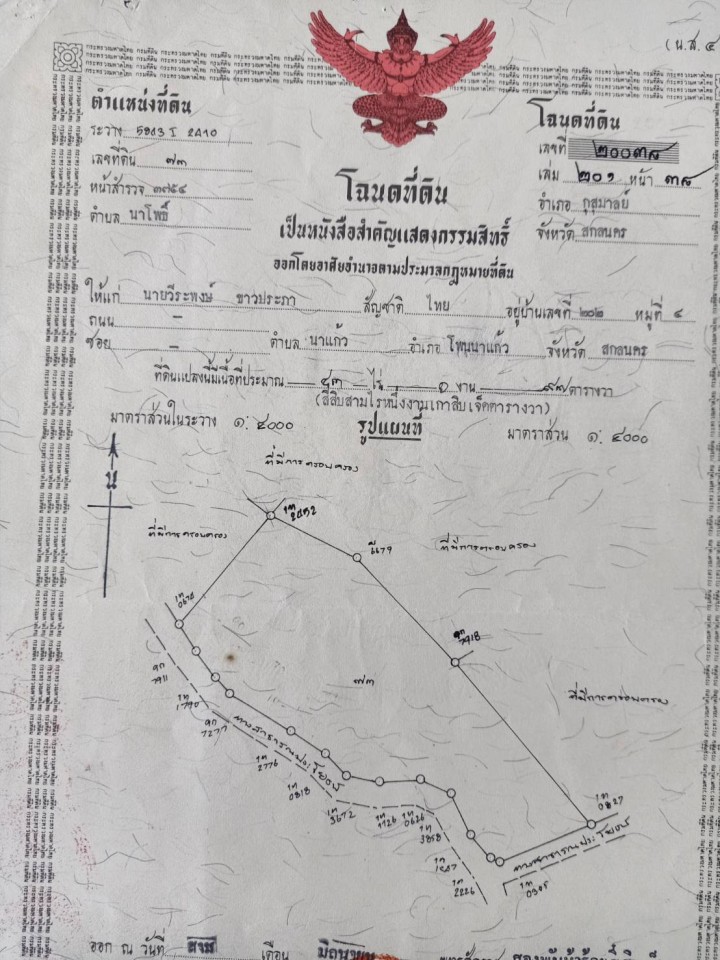 (น.ส. ๔
ตำแหน่งที่ดิน
ระวาง 5843 I 2410
เลขที่ดิน ๗๓
หน้าสำรวจ ๓๗๕๔
ตำบล นาโพธิ์
โฉนดที่ดิน
เลขที่ ๒๐๐๓๘
เล่ม ๒๐๑ หน้า ๓๘
อำเภอ กุสุมาลย์
จังหวัด สกลนคร
โฉนดที่ดิน
เป็นหนังสือสำคัญแสดงกรรมสิทธิ์
ออกโดยอาศัยอำนาจตามประมวลกฎหมายที่ดิน
ให้แก่ นายวีระพงษ์ ขาวประภา สัญชาติ ไทย อยู่บ้านเลขที่ ๒๐๒ หมู่ที่ ๔
ถนน –
ซอย – ตำบล นาแก้ว อำเภอ โพนนาแก้ว จังหวัด สกลนคร
ที่ดินแปลงนี้มีเนื้อที่ประมาณ ๔๓ ไร่ ๑ งาน ๙๗ ตารางวา
(สี่สิบสามไร่หนึ่งงานเก้าสิบเจ็ดตารางวา)
มาตราส่วนในระวาง ๑: ๔๐๐๐ รูปแผนที่ มาตราส่วน ๑: ๔๐๐๐
น
ที่มีการครอบครอง
ที่มีการครอบครอง
ที่มีการครอบครอง
1ท 2452
1ท 0674
7918
๗๓
ที่มีการครอบครอง
7911
1ท 1790
7277
ทางสาธารณประโยชน์
1ท 2776
1ท 0818
1ท 3672
1ท 1126
1ท 0626
1ท 3858
1ท 2226
1ท 0827
ทางสาธารณประโยชน์
ออก ณ วันที่ สาม เดือน มิถุนายน